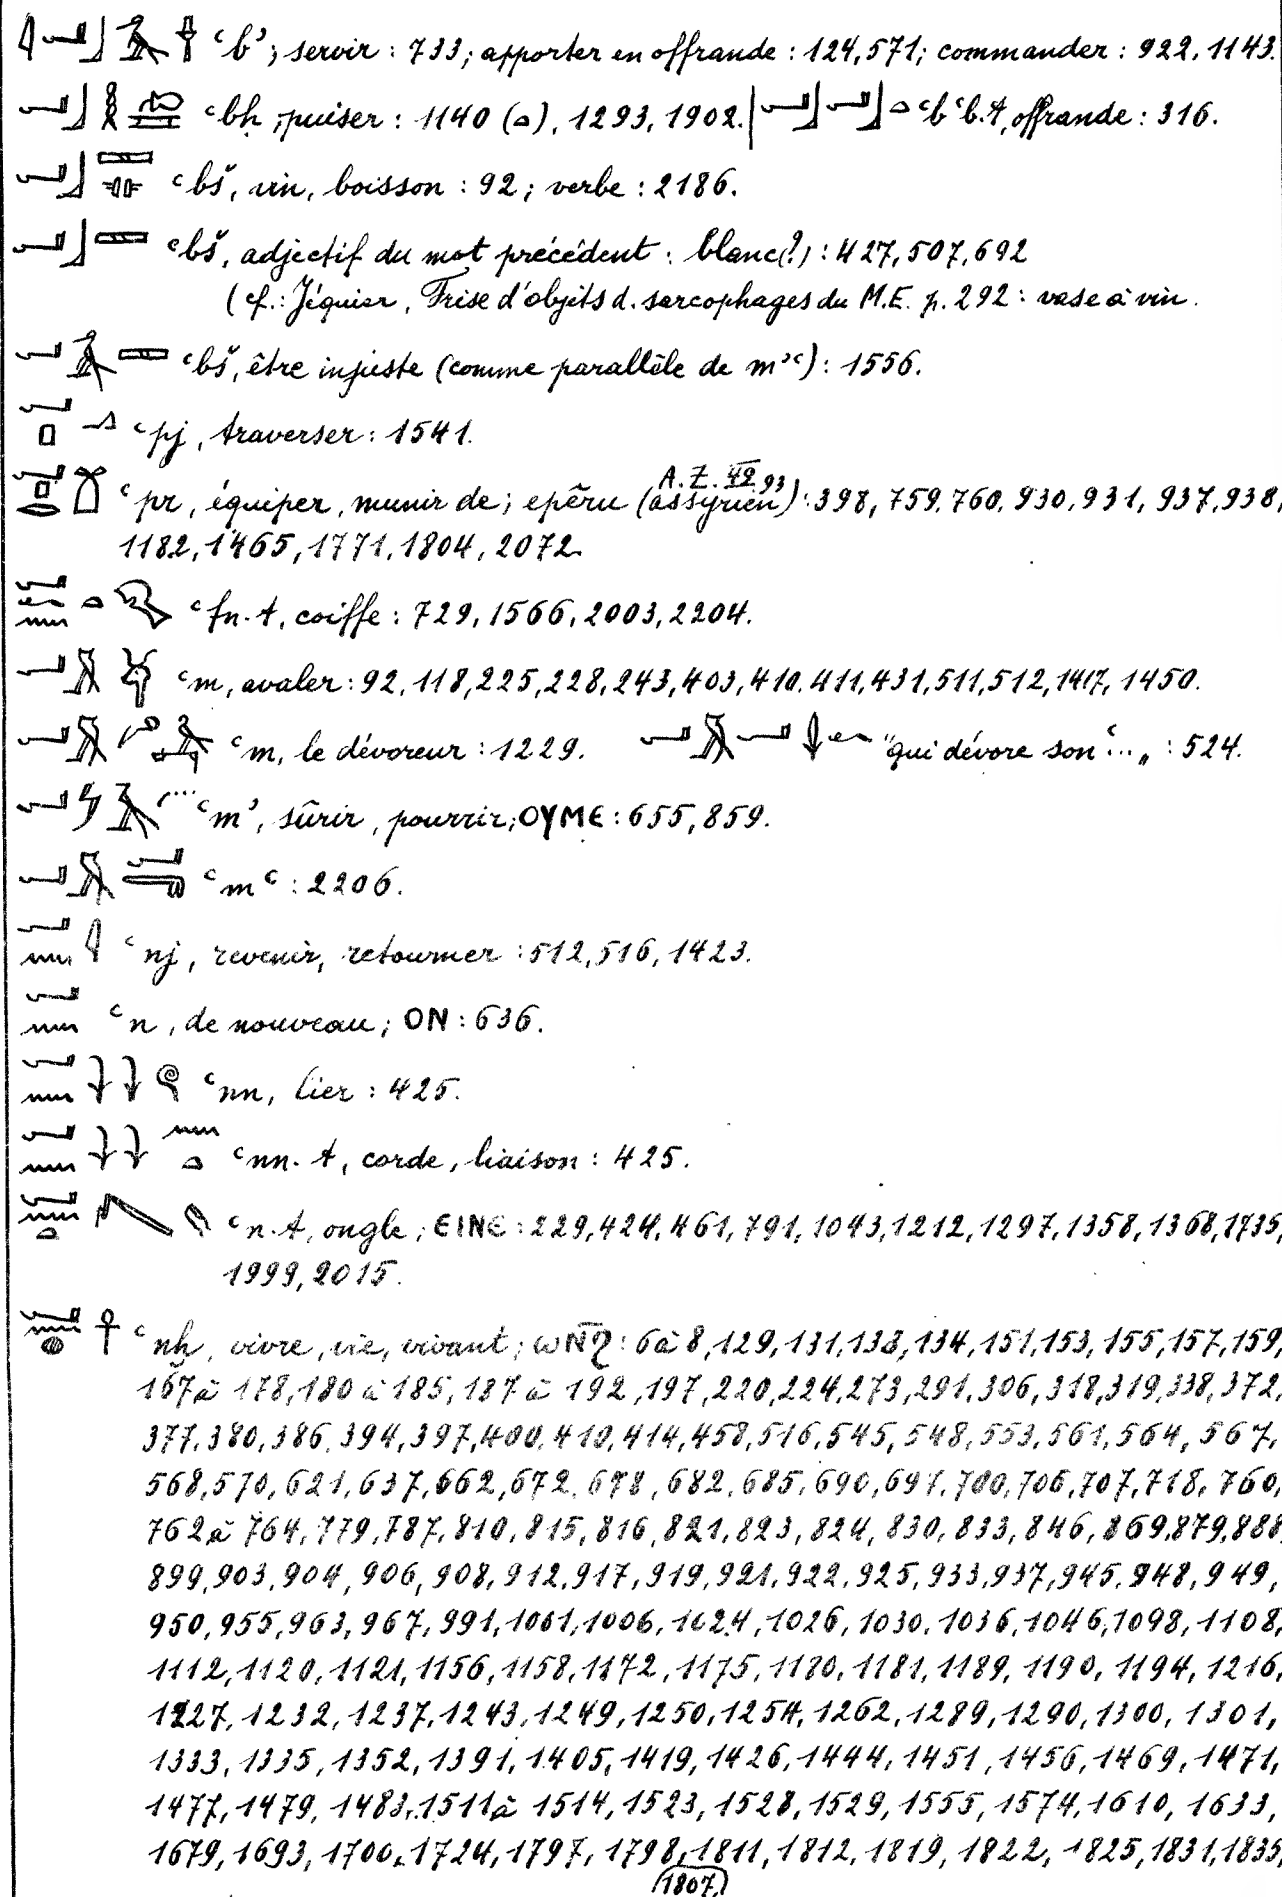 ꜥbꜣ, servir : 733; apporter en offrande : 124, 571; commander : 922, 1143.
ꜥbḫ, puiser : 1140 (𓏏), 1293, 1902. | ꜥbꜥb.t, offrande : 316.
ꜥbš, vin, boisson : 92; verbe : 2186.
ꜥbš, adjectif du mot précédent : blanc(?) : 427, 507, 692
(cf.: Jéquier, Frise d'objets d. sarcophages du M.E. p. 292 : vase à vin.
ꜥbš, être injuste (comme parallèle de mꜣꜥ) : 1556.
ꜥpj, traverser : 1541.
ꜥpr, équiper, munir de; epêru (assyrien) A.Z. 49, 93) : 398, 759, 760, 930, 931, 937, 938,
1182, 1465, 1771, 1804, 2072.
ꜥfn.t, coiffe : 729, 1566, 2003, 2204.
ꜥm, avaler : 92, 118, 225, 228, 243, 403, 410, 411, 431, 511, 512, 1417, 1450.
ꜥm, le dévoreur : 1229. "qui dévore son ꜥ...„ : 524.
ꜥmꜣ, sûrir, pourrir; ΟΥΜΕ : 655, 859.
ꜥmꜥ : 2206.
ꜥnj, revenir, retourner : 512, 516, 1423.
ꜥn, de nouveau; ON : 636.
ꜥnn, lier : 425.
ꜥnn.t, corde, liaison : 425.
ꜥn.t, ongle; ⲈⲒⲚⲈ : 229, 424, 461, 791, 1043, 1212, 1297, 1358, 1368, 1735,
1999, 2015.
ꜥnḫ, vivre, vie, vivant; ⲱⲛ̅ϩ : 6 à 8, 129, 131, 133, 134, 151, 153, 155, 157, 159,
167 à 178, 180 à 185, 187 à 192, 197, 220, 224, 273, 291, 306, 318, 319, 338, 372,
377, 380, 386, 394, 397, 400, 410, 414, 458, 516, 545, 548, 553, 561, 564, 567,
568, 570, 621, 637, 662, 672, 678, 682, 685, 690, 697, 700, 706, 707, 718, 760,
762 à 764, 779, 787, 810, 815, 816, 821, 823, 824, 830, 833, 846, 869, 879, 888
899, 903, 904, 906, 908, 912, 917, 919, 921, 922, 925, 933, 937, 945, 948, 949,
950, 955, 963, 967, 991, 1001, 1006, 1024, 1026, 1030, 1036, 1046, 1098, 1108,
1112, 1120, 1121, 1156, 1158, 1172, 1175, 1180, 1181, 1189, 1190, 1194, 1216,
1227, 1232, 1237, 1243, 1249, 1250, 1254, 1262, 1289, 1290, 1300, 1301,
1333, 1335, 1352, 1391, 1405, 1419, 1426, 1444, 1451, 1456, 1469, 1471,
1477, 1479, 1483, 1511 à 1514, 1523, 1528, 1529, 1555, 1574, 1610, 1633,
1679, 1693, 1700, 1724, 1797, 1798, 1811, 1812, 1819, 1822, 1825, 1831, 1835,
1807,